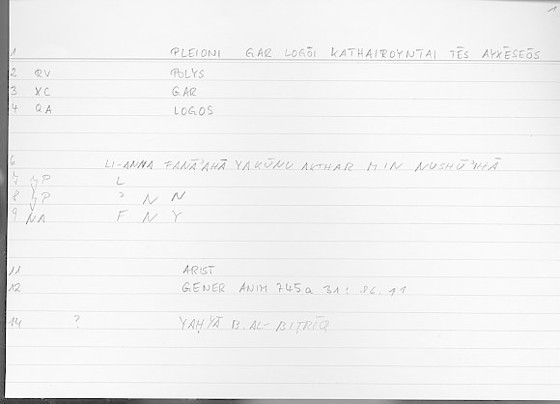 1
1 PLEIONI GAR LOGŌI KATHAIROYNTAI TĒS AYXĒSEŌS
2 RV POLYS
3 XC GAR
4 QA LOGOS
6 LI-ANNA FANĀ'AHĀ YAKŪNU AKTHAR MIN NUSHŪ'IHĀ
7 P L
8 P ʾ N N
9 NA F N Y
11 ARIST
12 GENER ANIM 745a 31: 86.11
14 ? YAḤYĀ B. AL-BIṬRĪQ